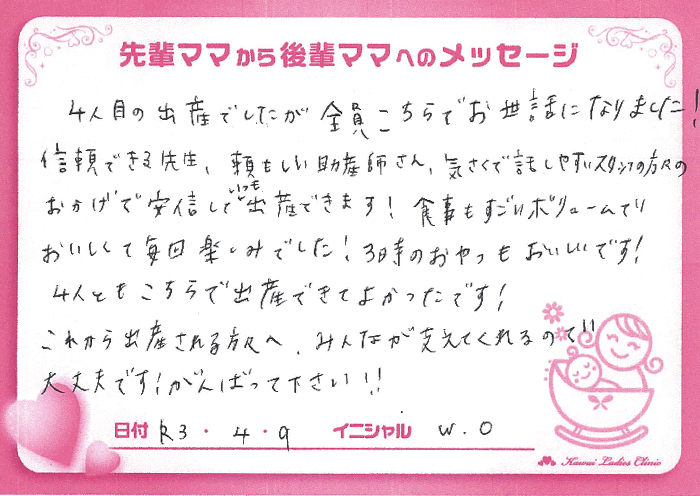 先輩ママから後輩ママへのメッセージ
4人目の出産でしたが全員こちらでお世話になりました!
信頼できる先生、頼もしい助産師さん、気さくで話しやすいスタッフの方々の
おかげで安信していつも出産できます!食事もすごいボリュームで
おいしくて毎回楽しみでした!3時のおやつもおいしいです!
4人ともこちらで出産できてよかったです!
これから出産される方々へ、みんなが支えてくれるので
大丈夫です!がんばって下さい!!
日付 R3・4・9 イニシャル W.O
Kawai Ladies Clinic